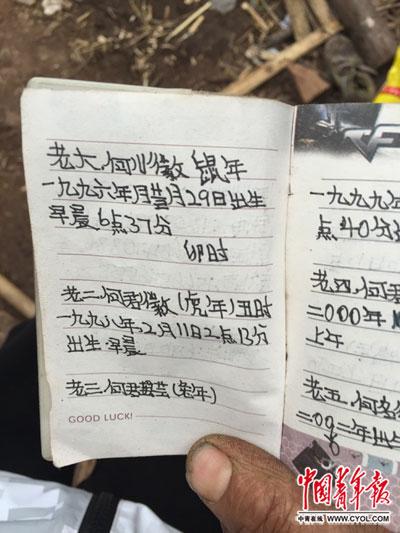 老大.何川徽 鼠年
一九九六年月 月29日出生
早晨6点37分
卯时
老二.何君徽(虎年)丑时
一九九八年2月11日2点13分
出生 早晨
老三.何君 (兔年)
GOOD LUCK!
一九九九年
点40分
老四.何君
二000年
上午
老五.何
二0 二年出
中国青年报
中青在线 WWW.CYOL.COM